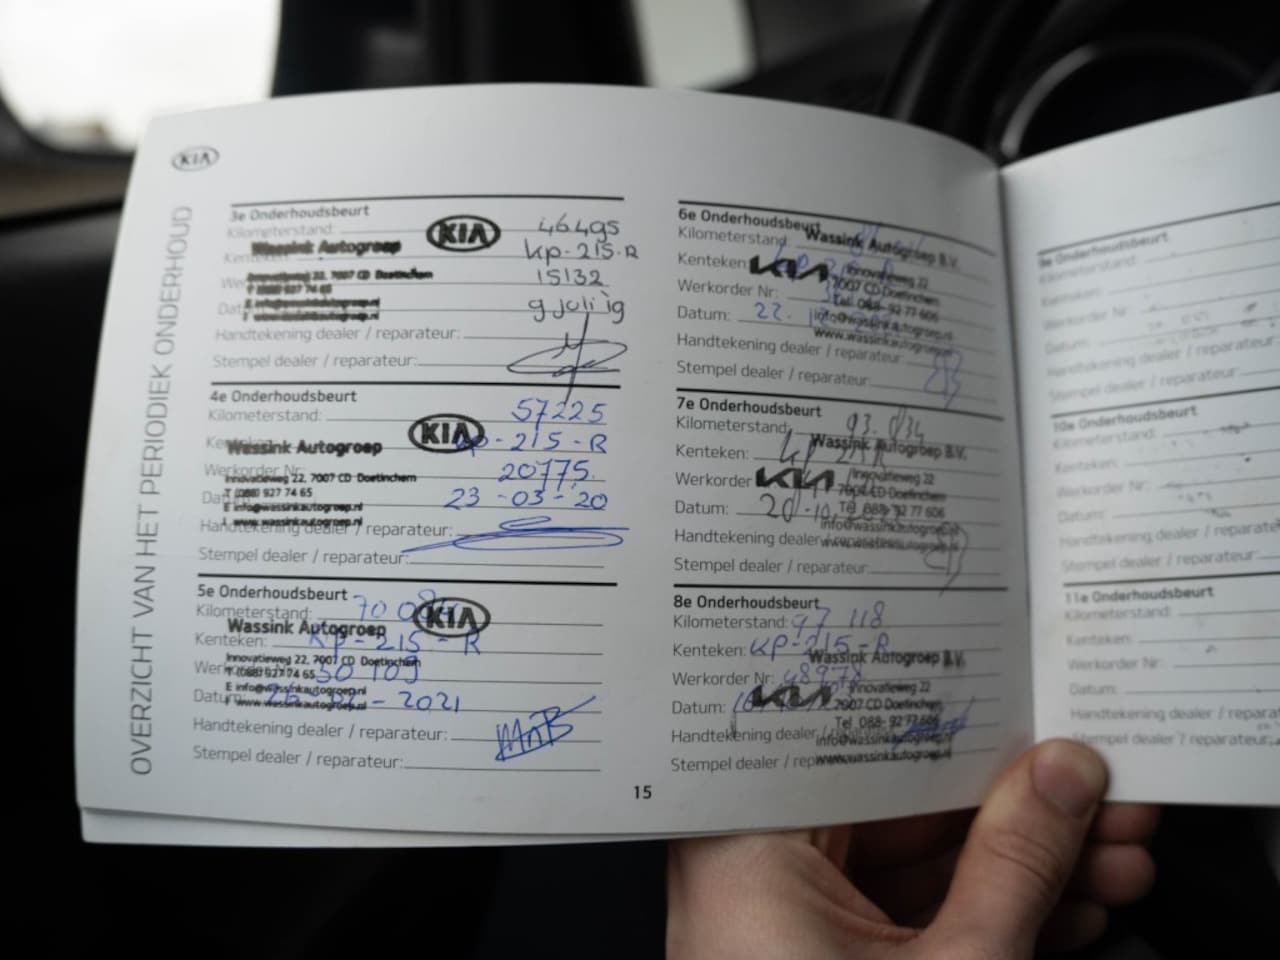 KIA
OVERZICHT VAN HET PERIODIEK ONDERHOUD
3e Onderhoudsbeurt
Kilometerstand: 46495
Wassink Autogroep KIA
Kenteken: KP-215-R
Innovatieweg 22, 7007 CD Doetinchem
15132
Datum: 9 juli 19
Handtekening dealer / reparateur:
Stempel dealer / reparateur:
4e Onderhoudsbeurt
Kilometerstand: 57225
Wassink Autogroep KIA
Kenteken: KP-215-R
Werkorder Nr: 20775
Innovatieweg 22, 7007 CD Doetinchem
T (088) 927 74 65
Datum: 23-03-20
E info@wassinkautogroep.nl
I www.wassinkautogroep.nl
Handtekening dealer / reparateur:
Stempel dealer / reparateur:
5e Onderhoudsbeurt
Kilometerstand: 70
Wassink Autogroep KIA
Kenteken: KP-215-R
Innovatieweg 22, 7007 CD Doetinchem
Werkorder Nr: 30109
T (088) 927 74 65
E info@wassinkautogroep.nl
Datum: 2021
I www.wassinkautogroep.nl
Handtekening dealer / reparateur:
Stempel dealer / reparateur:
6e Onderhoudsbeurt
Kilometerstand:
Wassink Autogroep B.V.
Kenteken:
KIA
Innovatieweg 22
Werkorder Nr:
7007 CD Doetinchem
Tel. 088- 92 77 606
Datum: 22.
info@wassinkautogroep.nl
www.wassinkautogroep.nl
Handtekening dealer / reparateur:
Stempel dealer / reparateur:
7e Onderhoudsbeurt
Kilometerstand: 93.034
Wassink Autogroep B.V.
Kenteken: KP
KIA
Innovatieweg 22
Werkorder
7007 CD Doetinchem
Tel. 088- 92 77 606
Datum: 20-10
info@wassinkautogroep.nl
www.wassinkautogroep.nl
Handtekening dealer
Stempel dealer / reparateur:
8e Onderhoudsbeurt
Kilometerstand: 97 118
Kenteken: KP-215-R
Wassink Autogroep B.V.
Werkorder Nr: 48978
KIA
Innovatieweg 22
Datum:
7007 CD Doetinchem
Tel. 088- 92 77 606
Handtekening dealer
info@wassinkautogroep.nl
www.wassinkautogroep.nl
Stempel dealer / reparateur:
15
9e Onderhoudsbeurt
Kilometerstand:
Kenteken:
Werkorder Nr:
Datum:
Handtekening dealer / reparateur:
Stempel dealer / reparateur:
10e Onderhoudsbeurt
Kilometerstand:
Kenteken:
Werkorder Nr:
Datum:
Handtekening dealer / reparateur
Stempel dealer / reparateur:
11e Onderhoudsbeurt
Kilometerstand:
Kenteken:
Werkorder Nr:
Datum:
Handtekening dealer / repara
Stempel dealer / reparateur: